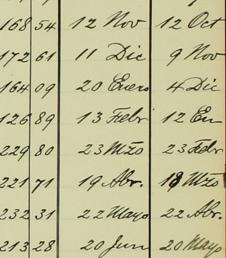 168 54 12 Nov 12 Oct
172 61 11 Dic 9 Nov
164 09 20 Enero 4 Dic
126 89 13 Febr 12 En
229 80 23 Mzo 23 Febr
221 71 19 Abr. 18 Mzo
232 31 22 Mayo 22 Abr.
213 28 20 Jun 20 Mayo